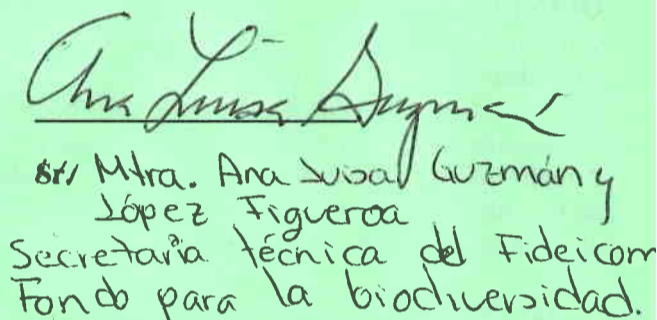 Ana Luisa Guzmán
Mtra. Ana Luisa Guzmán y
López Figueroa
Secretaria técnica del Fideicom
Fondo para la biodiversidad.